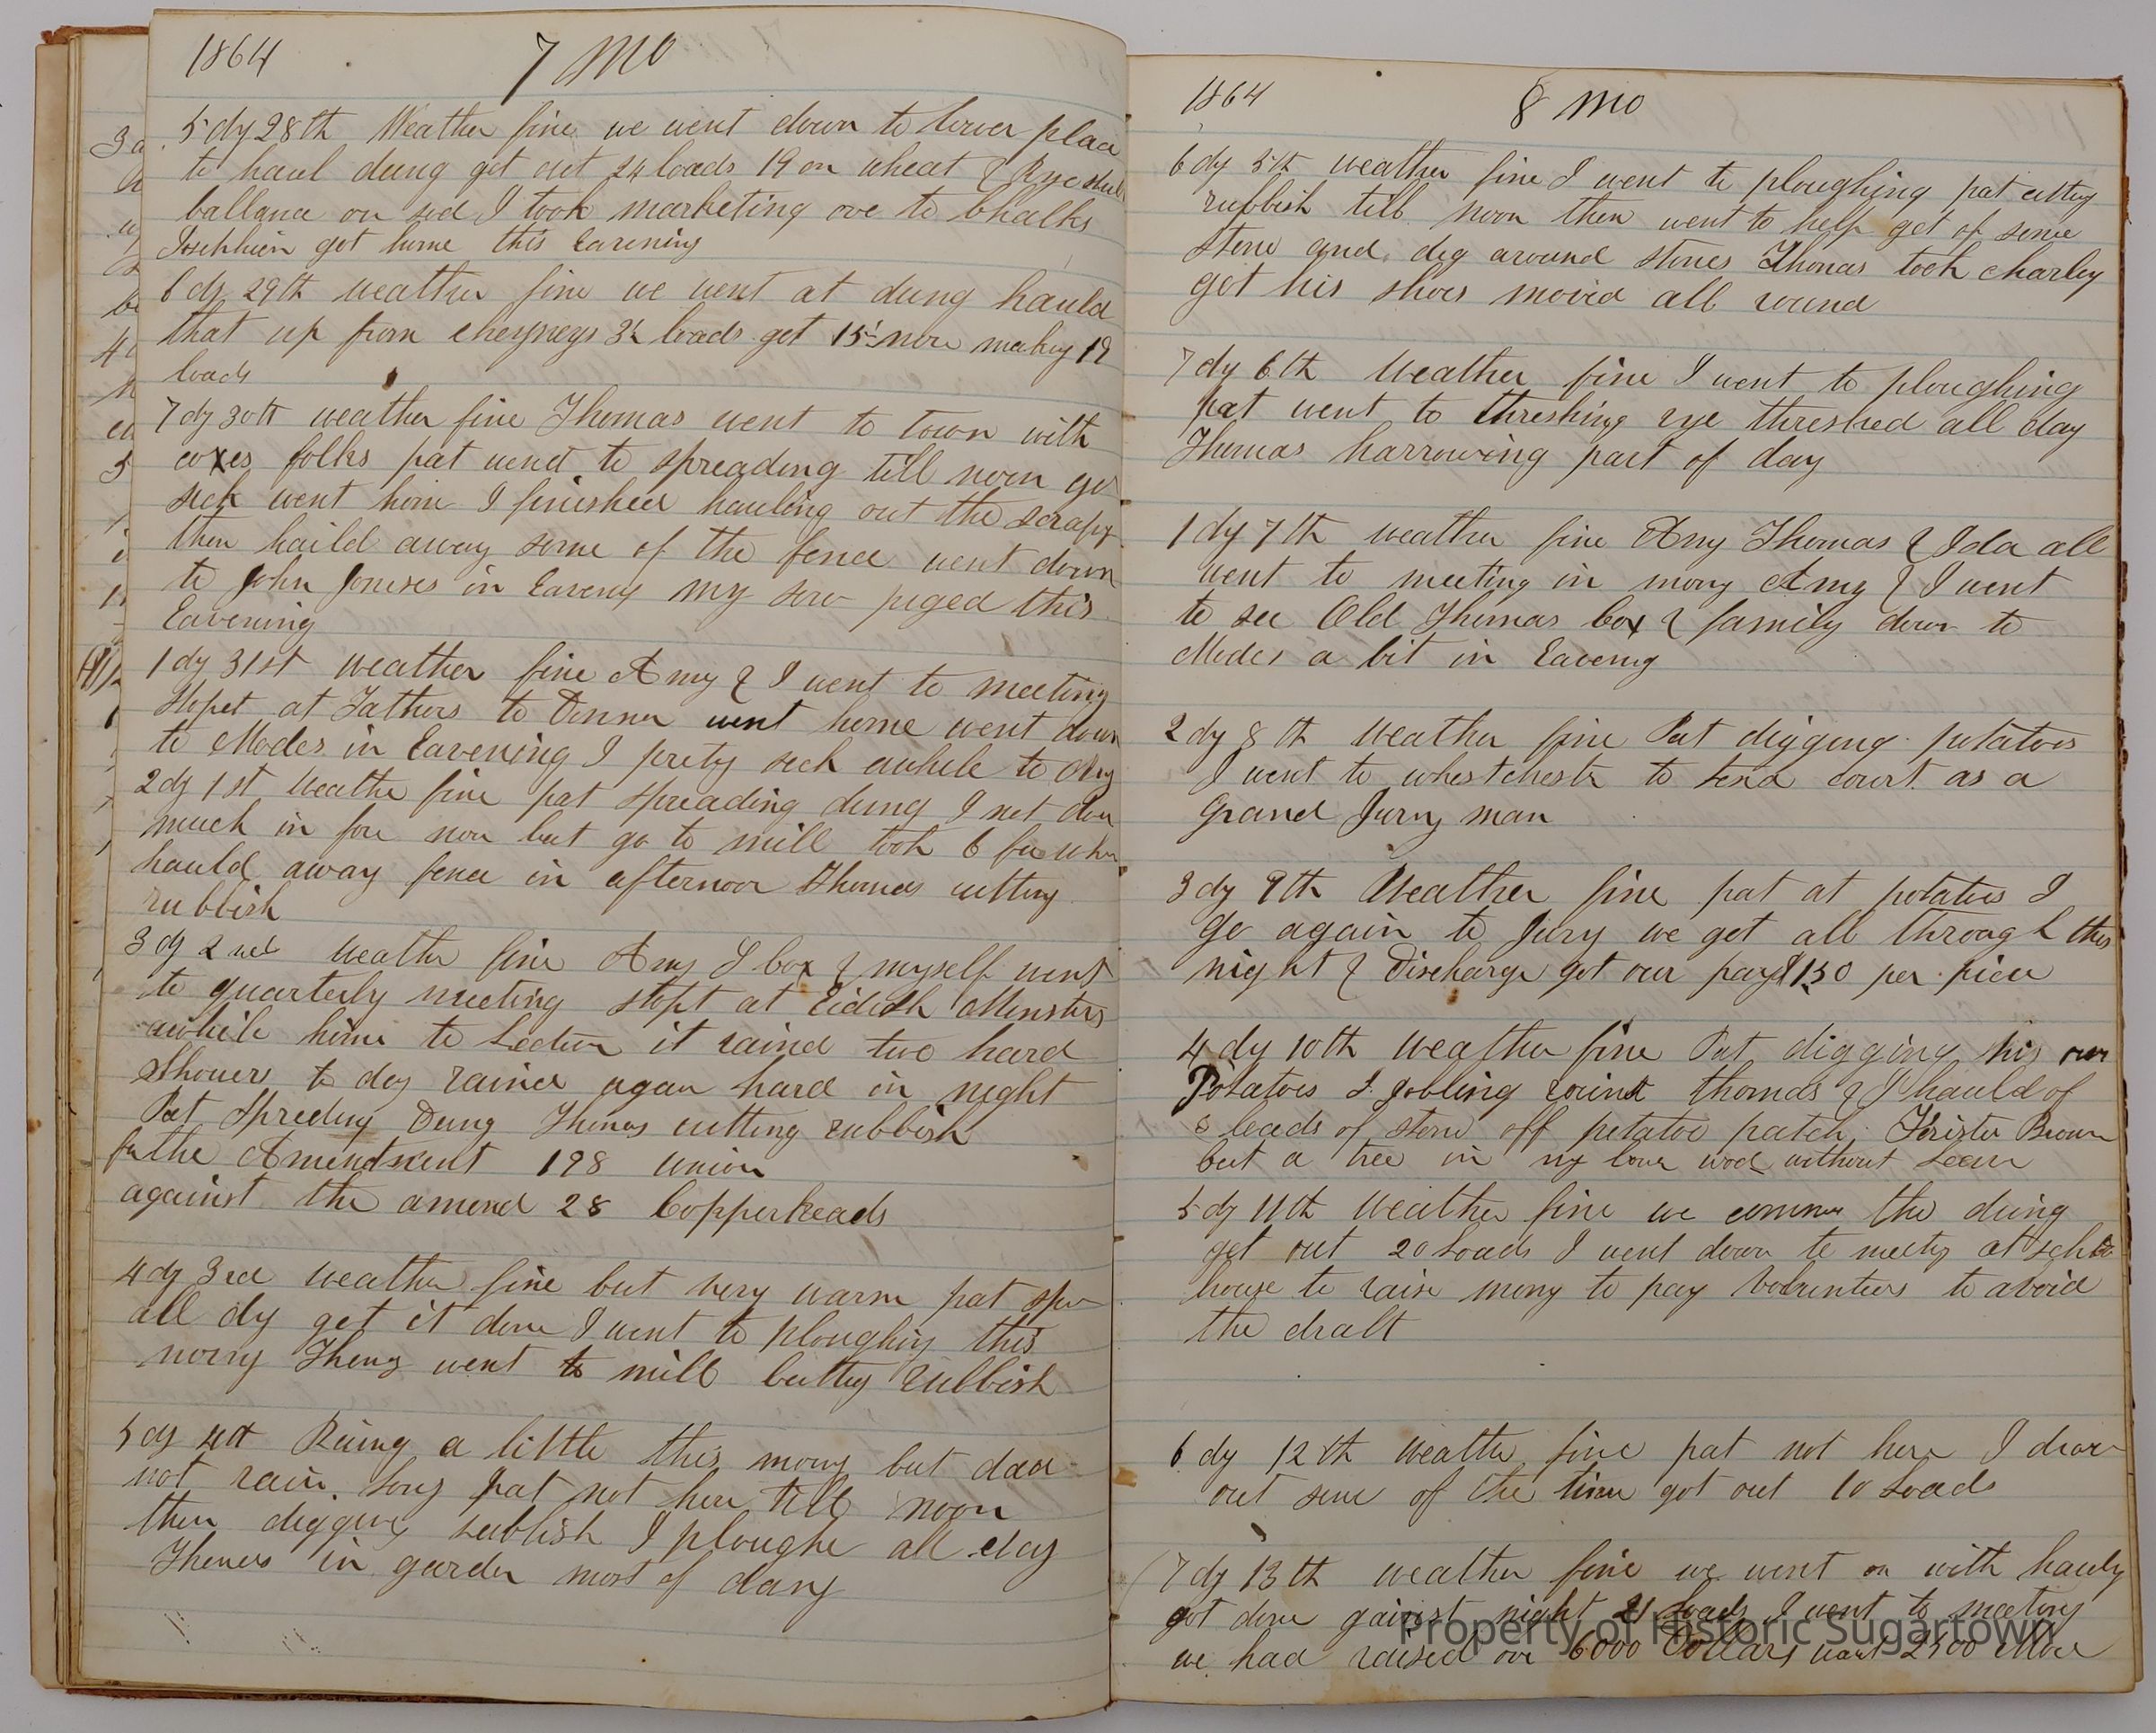 1864 7 mo
5 dy 28th Weather fine we went down to lower place
to haul dung got out 24 loads 19 on wheat & Rye stub
ballance on sod I took marketing ove to
got home this Eavening
6 dy 29th weather fine we went at dung hauld
that up from cheyneys 3½ loads got 15½ more making 19
loads
7 dy 30th weather fine Thomas went to town with
coxes folks pat went to spreading till noon got
sick went home I finished hauling out the
then haild away some of the fence went down
to John Joneses in Eaveng my sow piged this
Eavening
1 dy 31st weather fine Amy & I went to meeting
stopet at Fathers to Dinner went home went down
to Medes in Eavening I prety sick awhile to day
2 dy 1st Weathe fine pat spreading dung I not don
much in fore noon but go to mill took 6 bu
hauld away fence in afternoon Thomas cutting
rubbish
3 dy 2nd Weathe fine Amy I Cox & myself went
to quarterly meeting stopt at
awhile home to Lection it raind two hard
Shouers to day raind agan hard in night
Pat Spreding Dung Thomas cutting rubbish
for the Amendment 198 Union
against the amend 28 Copperheads
4 dy 3rd weather fine but very warm pat
all dy get it done I went to ploughing this
morng Thomas went to mill cutting rubbish
5 dy 4th Raing a little this morng but dad
not rain long pat not her till noon
then digging rubbish I ploughe all day
Thomas in garden most of day
1864 8 mo
6 dy 5th weather fine I went to ploughing pat cutting
rubbish till noon then went to help get of some
stone and dig around stones Thomas took charley
got his shoes moved all round
7 dy 6th Weather fine I went to ploughing
pat went to threshing rye threshed all day
Thomas harrowing part of day
1 dy 7th weather fine Amy Thomas & Ida all
went to meeting in morng Amy & I went
to see Old Thomas Cox & family down to
Medes a bit in Eaveng
2 dy 8th Weather fine Pat digging potatoes
I went to whestchestr to tend court as a
Grand Jury man
3 dy 9th Weather fine pat at potatoes I
go again to Jury we get all through this
night & Discharge got our pay $1 50 per piece
4 dy 10th Weather fine Pat digging his own
Potatoes I Jobbing round thomas & I hauld of
8 loads of stone off potatoe patch Brown
cut a tree in my lower wood without
5 dy 11th Weather fine we commn the dung
get out 20 Loads I went down to meetng at school
house to raise mony to pay Volunteers to avoid
the draft
6 dy 12th Weathe fine pat not here I draw
out some of the time got out 10 Loads
7 dy 13th weather fine we went on with hauling
got done gainst night 21 loads I went to meeting
we had raised ove 6000 Dollars want 2500 More
Property of Historic Sugartown